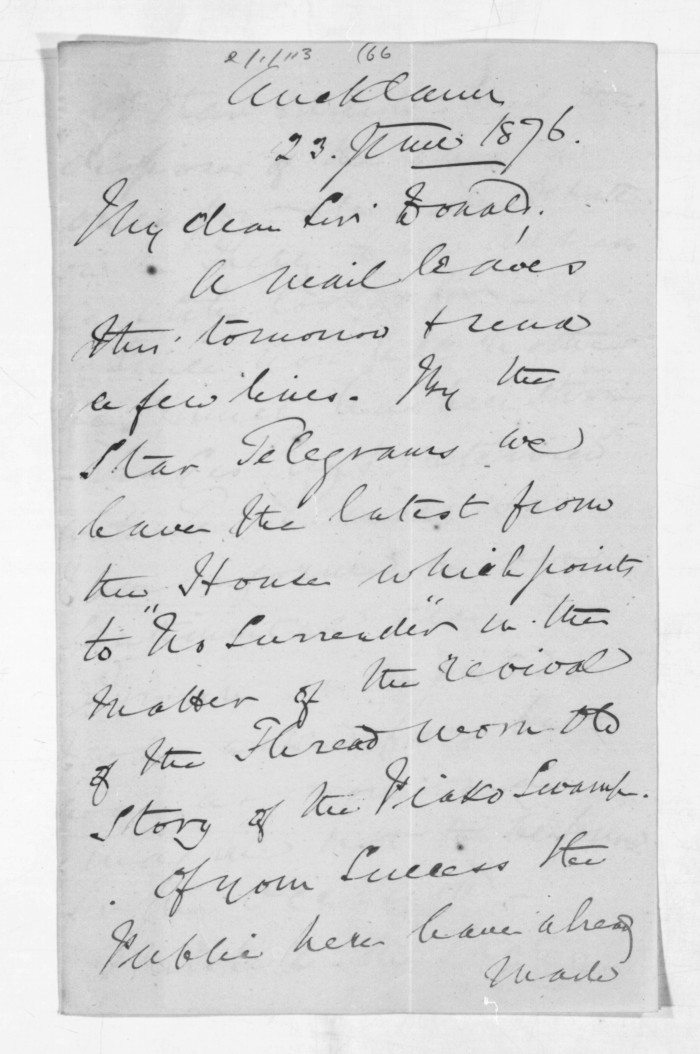 Auckland
23. June 1876.
My dear Sir Donald,
A mail leaves
this tomorrow & send
a few lines. By the
Star Telegrams we
have the latest from
the House which points
to "No Surrender" in the
matter of the revival
of the Thread worn old
Story of the Piako Swamp.
Of your Success the
Public here have already
made